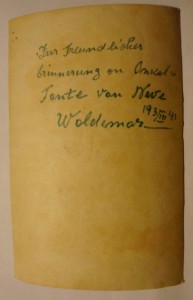 Zur freundlicher
Erinnerung an Onkel u
Tante von Neve
Woldemar